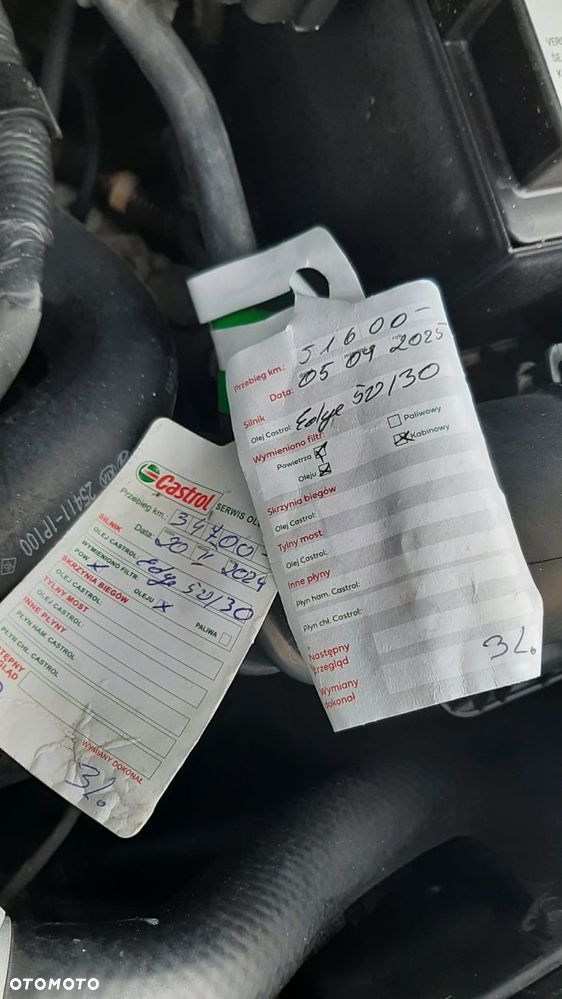 VER
Przebieg km.: 51600-
Data: 05 09 2025
Silnik
Olej Castrol: Edge 5W/30
Wymieniono filtr:
Powietrza
Paliwowy
Oleju
Kabinowy
Skrzynia biegów
Olej Castrol:
Tylny most
Olej Castrol:
Inne płyny
Płyn ham. Castrol:
Płyn chł. Castrol:
Następny
przegląd
Wymiany
dokonał
3L.
Castrol SERWIS OL
Przebieg km.: 34700-
Data: 2024
SILNIK
OLEJ CASTROL: Edge 5W/30
WYMIENIONO FILTR:
POW OLEJU PALIWA
SKRZYNIA BIEGÓW
OLEJ CASTROL:
TYLNY MOST
OLEJ CASTROL:
INNE PŁYNY
PŁYN HAM. CASTROL
PŁYN CHŁ. CASTROL
WYMIANY DOKONAŁ
3L.
25411-1P100
OTOMOTO